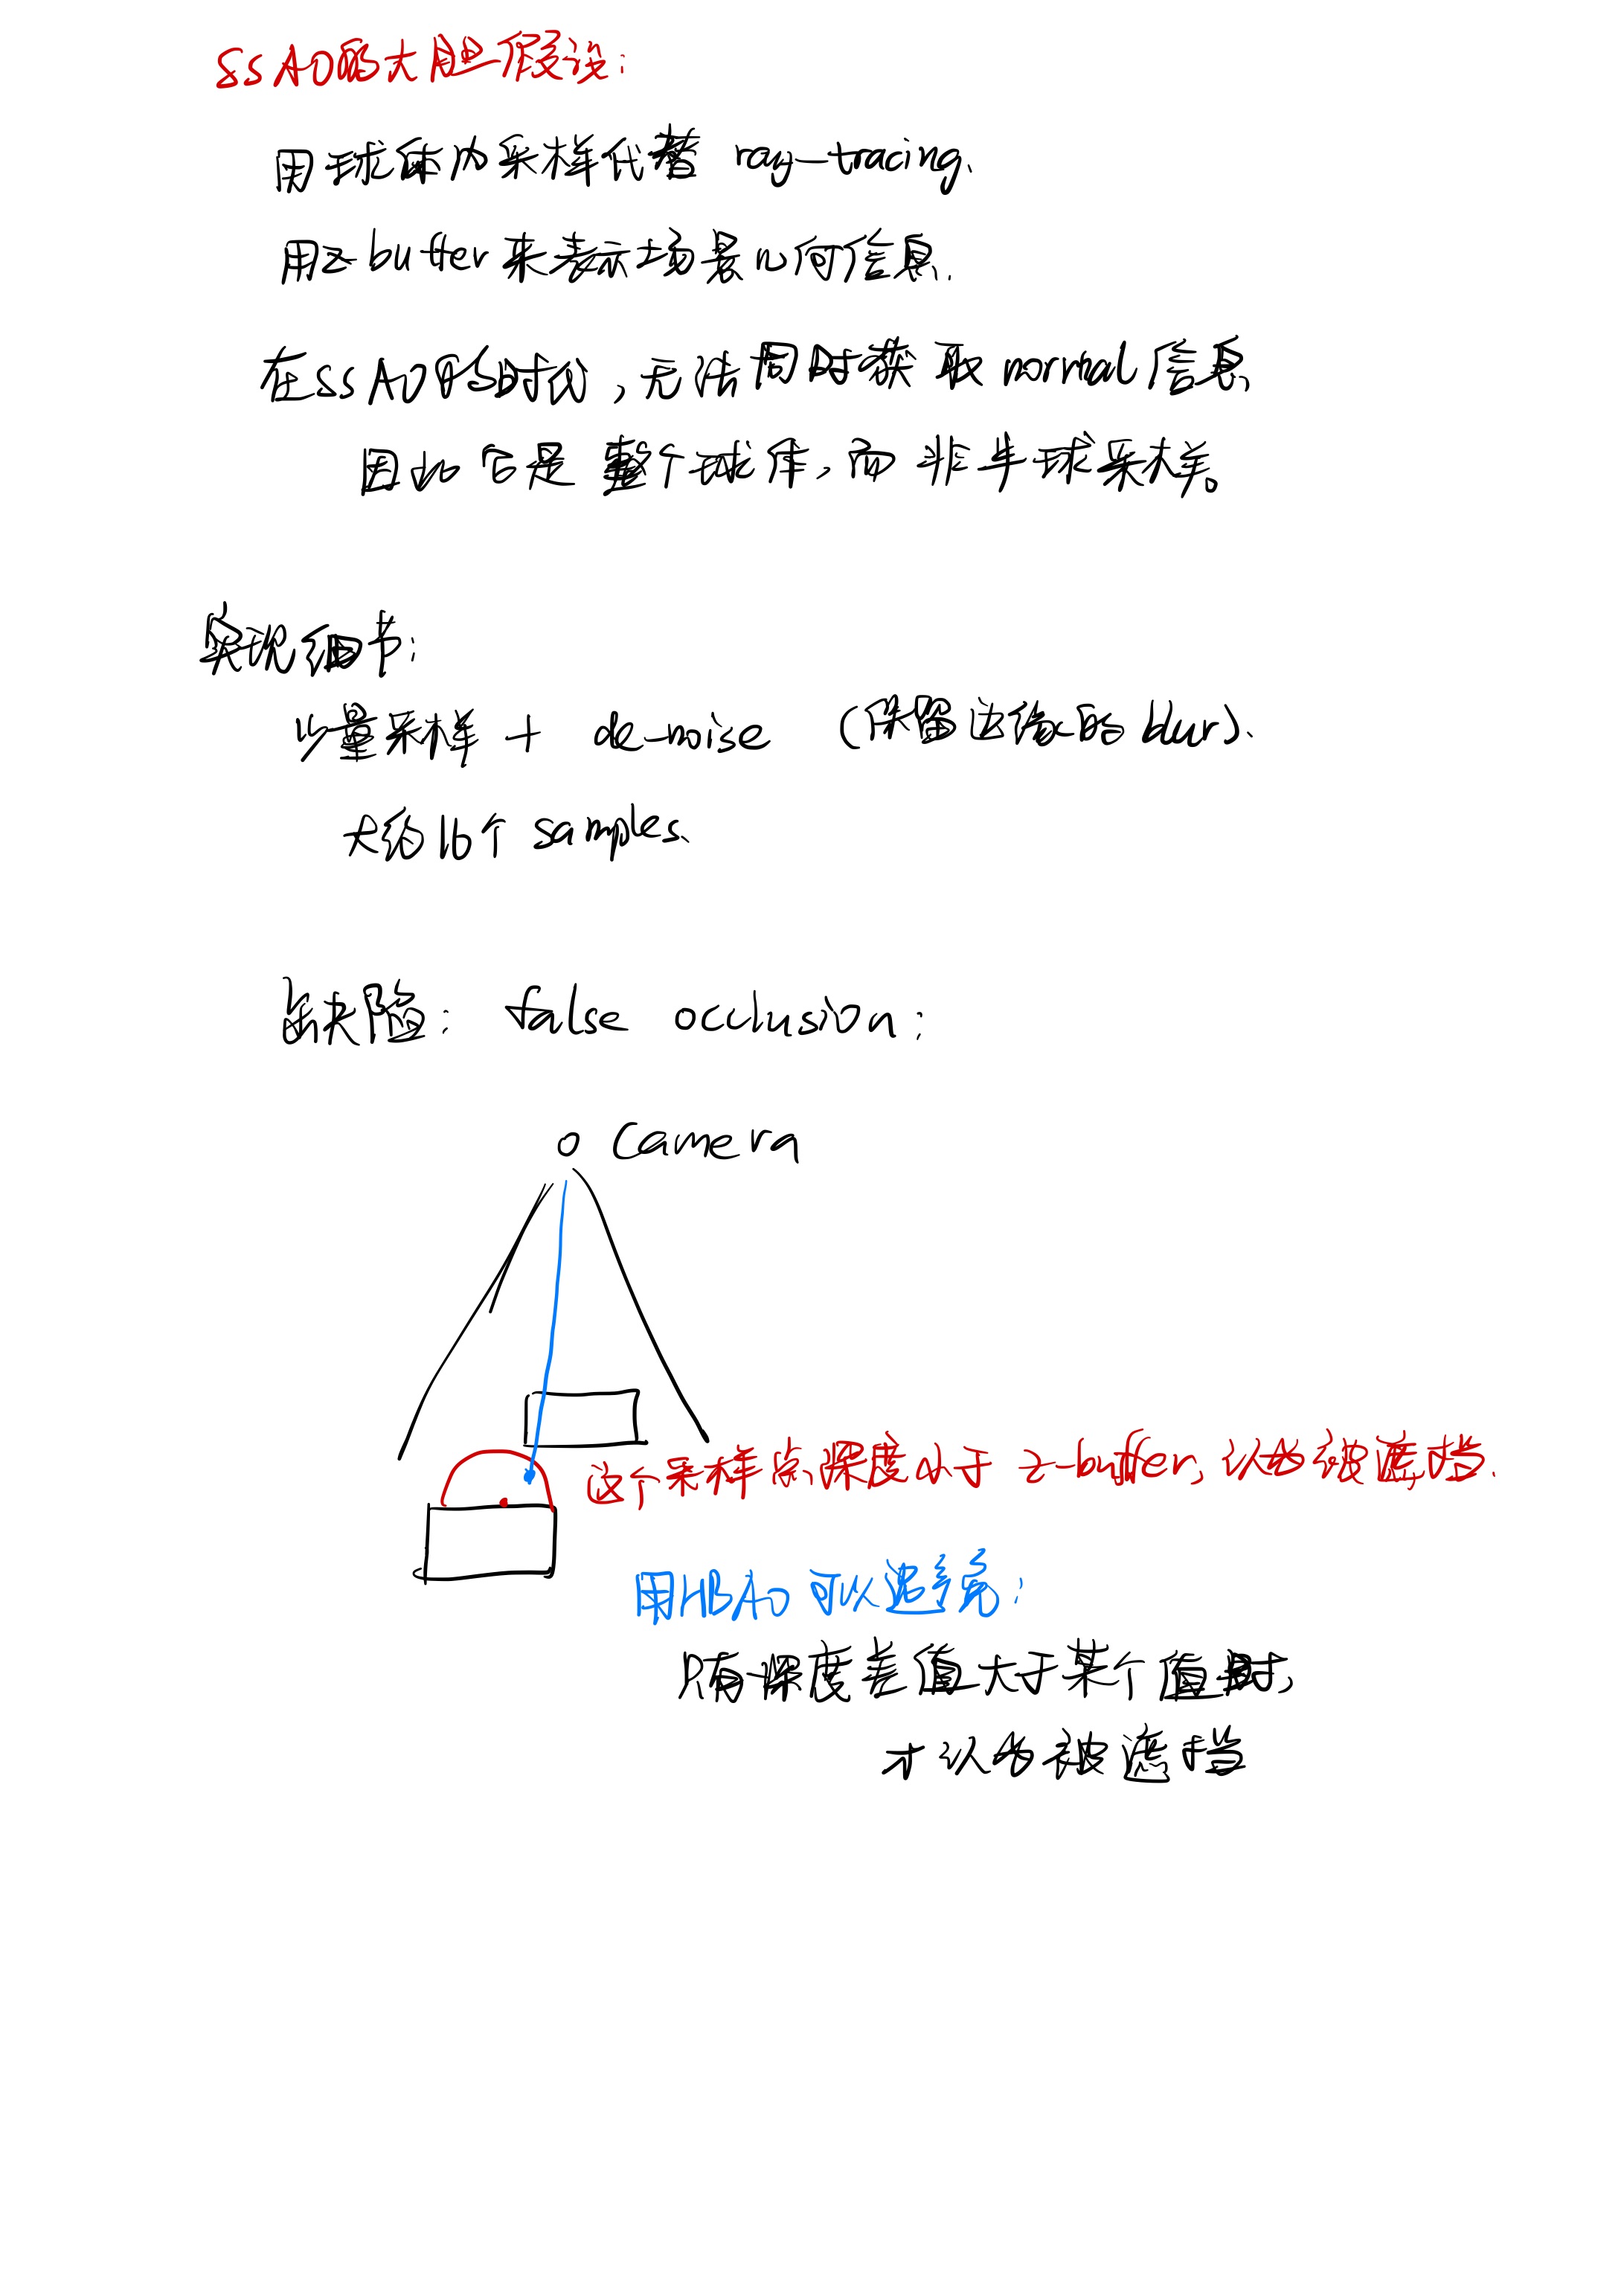 SSAO的大胆假设:
用球体内采样代替 ray-tracing.
用z-buffer来表示场景几何信息.
在SSAO的时代,无法同时获取normal信息、
因此它是整个球体,而非半球采样。
实现细节:
少量采样 + de-noise (保留边缘的blur)、
大约16个 samples、
缺陷: false occlusion:
Camera
这个采样点深度小于 z-buffer, 认为被遮挡.
用HBAO可以避免:
只有深度差值大于某个值时,
才认为被遮挡